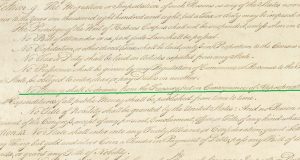 The Migration or Importation of such Persons as any of the States now
the Year one thousand eight hundred and eight, but a Tax or duty may be imposed
The Privilege of the Writ of Habeas Corpus shall not be suspended, unless when in
No Bill of Attainder or ex post facto Law shall be passed.
No Capitation, or other direct, Tax shall be laid, unless in Proportion to the Census
No Tax or Duty shall be laid on Articles exported from any State.
No Preference shall be given by any Regulation of Commerce or Revenue to the
State, be obliged to enter, clear, or pay Duties in another.
No Money shall be drawn from the Treasury, but in Consequence of Appropriations
Expenditures of all public Money shall be published from time to time.
No Title of Nobility shall be granted by the United States: And no Person
the Congress, accept of any present, Emolument, Office, or Title, of any kind
No State shall enter into any Treaty, Alliance, or Confederation; grant
or grant any Title of Nobility.